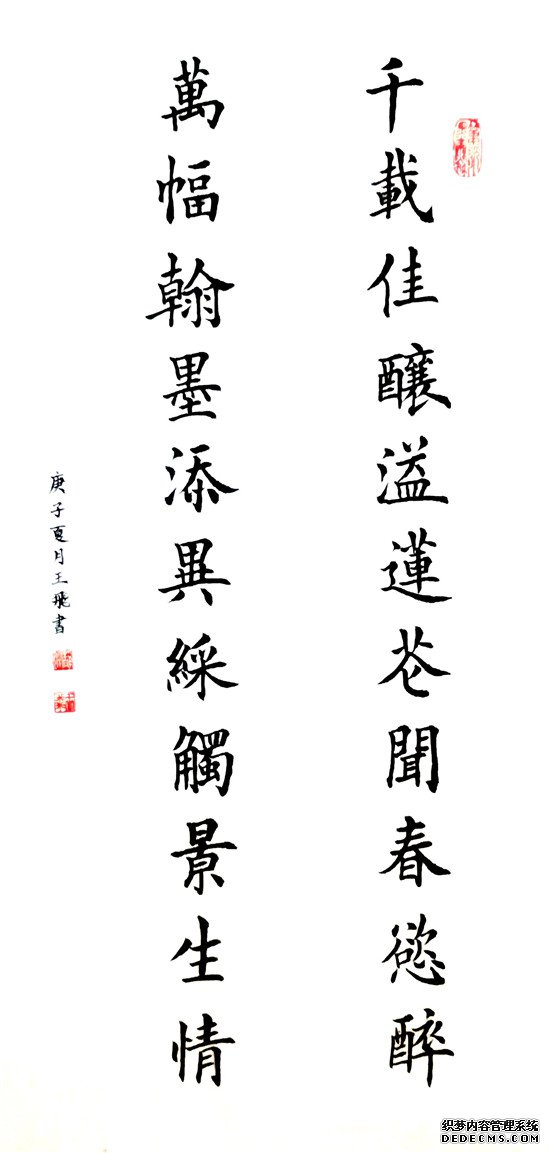 千載佳釀溢蓮芲聞春慾醉
萬幅翰墨添異綵觸景生情
庚子夏月王飛書
织梦内容管理系统
DEDECMS.COM